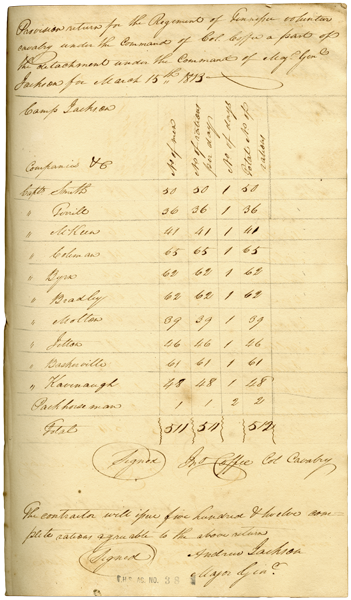 Provision return for the Regiment of Tennessee volunteer
cavalry under the Command of Col Coffee a part of
the detachment under the Command of Majr Genl
Jackson for March 15th 1813
Camp Jackson
Companies &C No of men No of rations per day No of days Total No of rations
Captn Smith 50 50 1 50
" 36 36 1 36
" McKeen 41 41 1 41
" Coleman 65 65 1 65
" Byrn 62 62 1 62
" Bradley 62 62 1 62
" Molton 39 39 1 39
" Jetton 46 46 1 46
" Baskerville 61 61 1 61
" Kavanaugh 48 48 1 48
Packhorseman 1 1 2 2
Total 511 511 512
Signed Jno Coffee Col Cavalry
The contractor will issue five hundred & twelve com-
plete rations agreeable to the above return
Signed Andrew Jackson
Major Genl.
THS AC. NO. 38